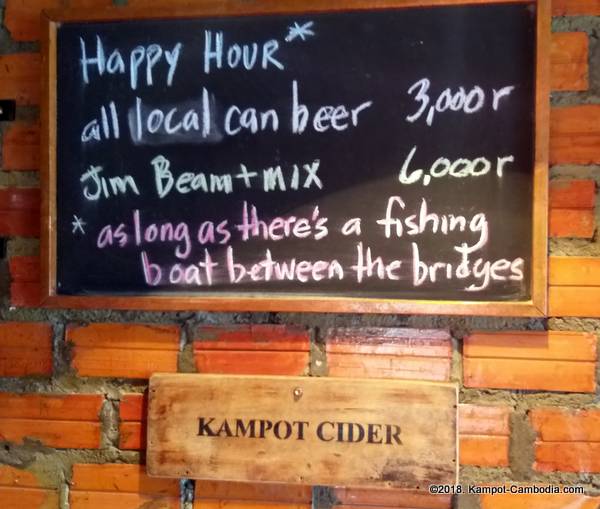 Happy Hour*
all local can beer 3,000r
Jim Beam + mix 6,000r
* as long as there's a fishing
boat between the bridges
KAMPOT CIDER
©2018. Kampot-Cambodia.com